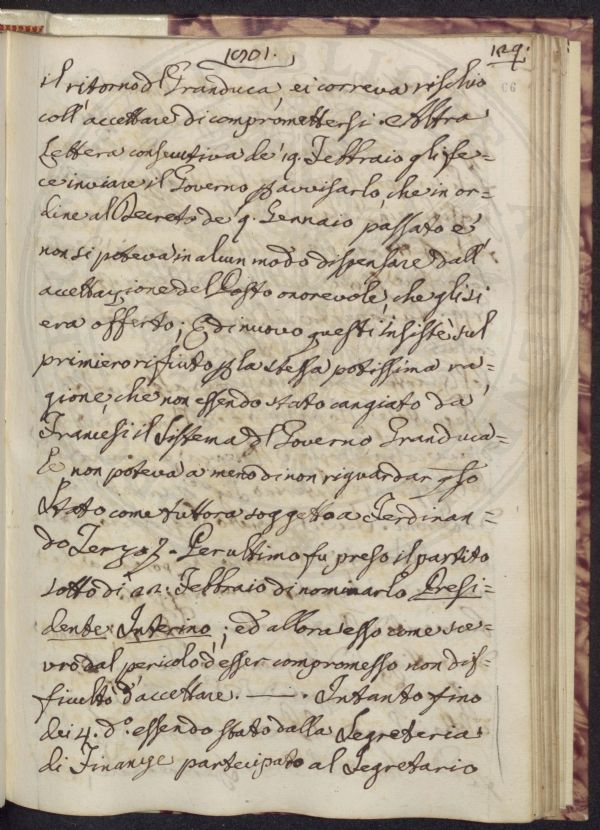 1801. 129.
il ritorno dl Granduca, ei correva rischio
coll'accettare di compromettersi. Altra
Lettera consecutiva de' 19. Febbraio gli fe=
ce inviare il Governo p avvisarlo, che in or=
dine al Decreto de' 9. Gennaio passato e'
non si poteva in alcun modo dispensare dall'
accettazione del Posto onorevole, che gli si
era offerto; E di nuovo questi insistè sul
primiero rifiuto p la stessa potissima ra=
gione, che non essendo stato cangiato da'
Francesi il Sistema dl Governo Granduca=
le non poteva a meno di non riguardar qsto
Stato come tuttora soggetto a Ferdinan=
do Terzo. Per ultimo fu preso il partito
sotto dì 22. Febbraio di nominarlo Presi=
dente Interino; ed allora esso come sce=
vro dal pericolo d'esser compromesso non dif=
ficultò d'accettare. —— . Intanto fino
dei 4. do. essendo stato dalla Segreteria
di Finanze partecipato al Segretario